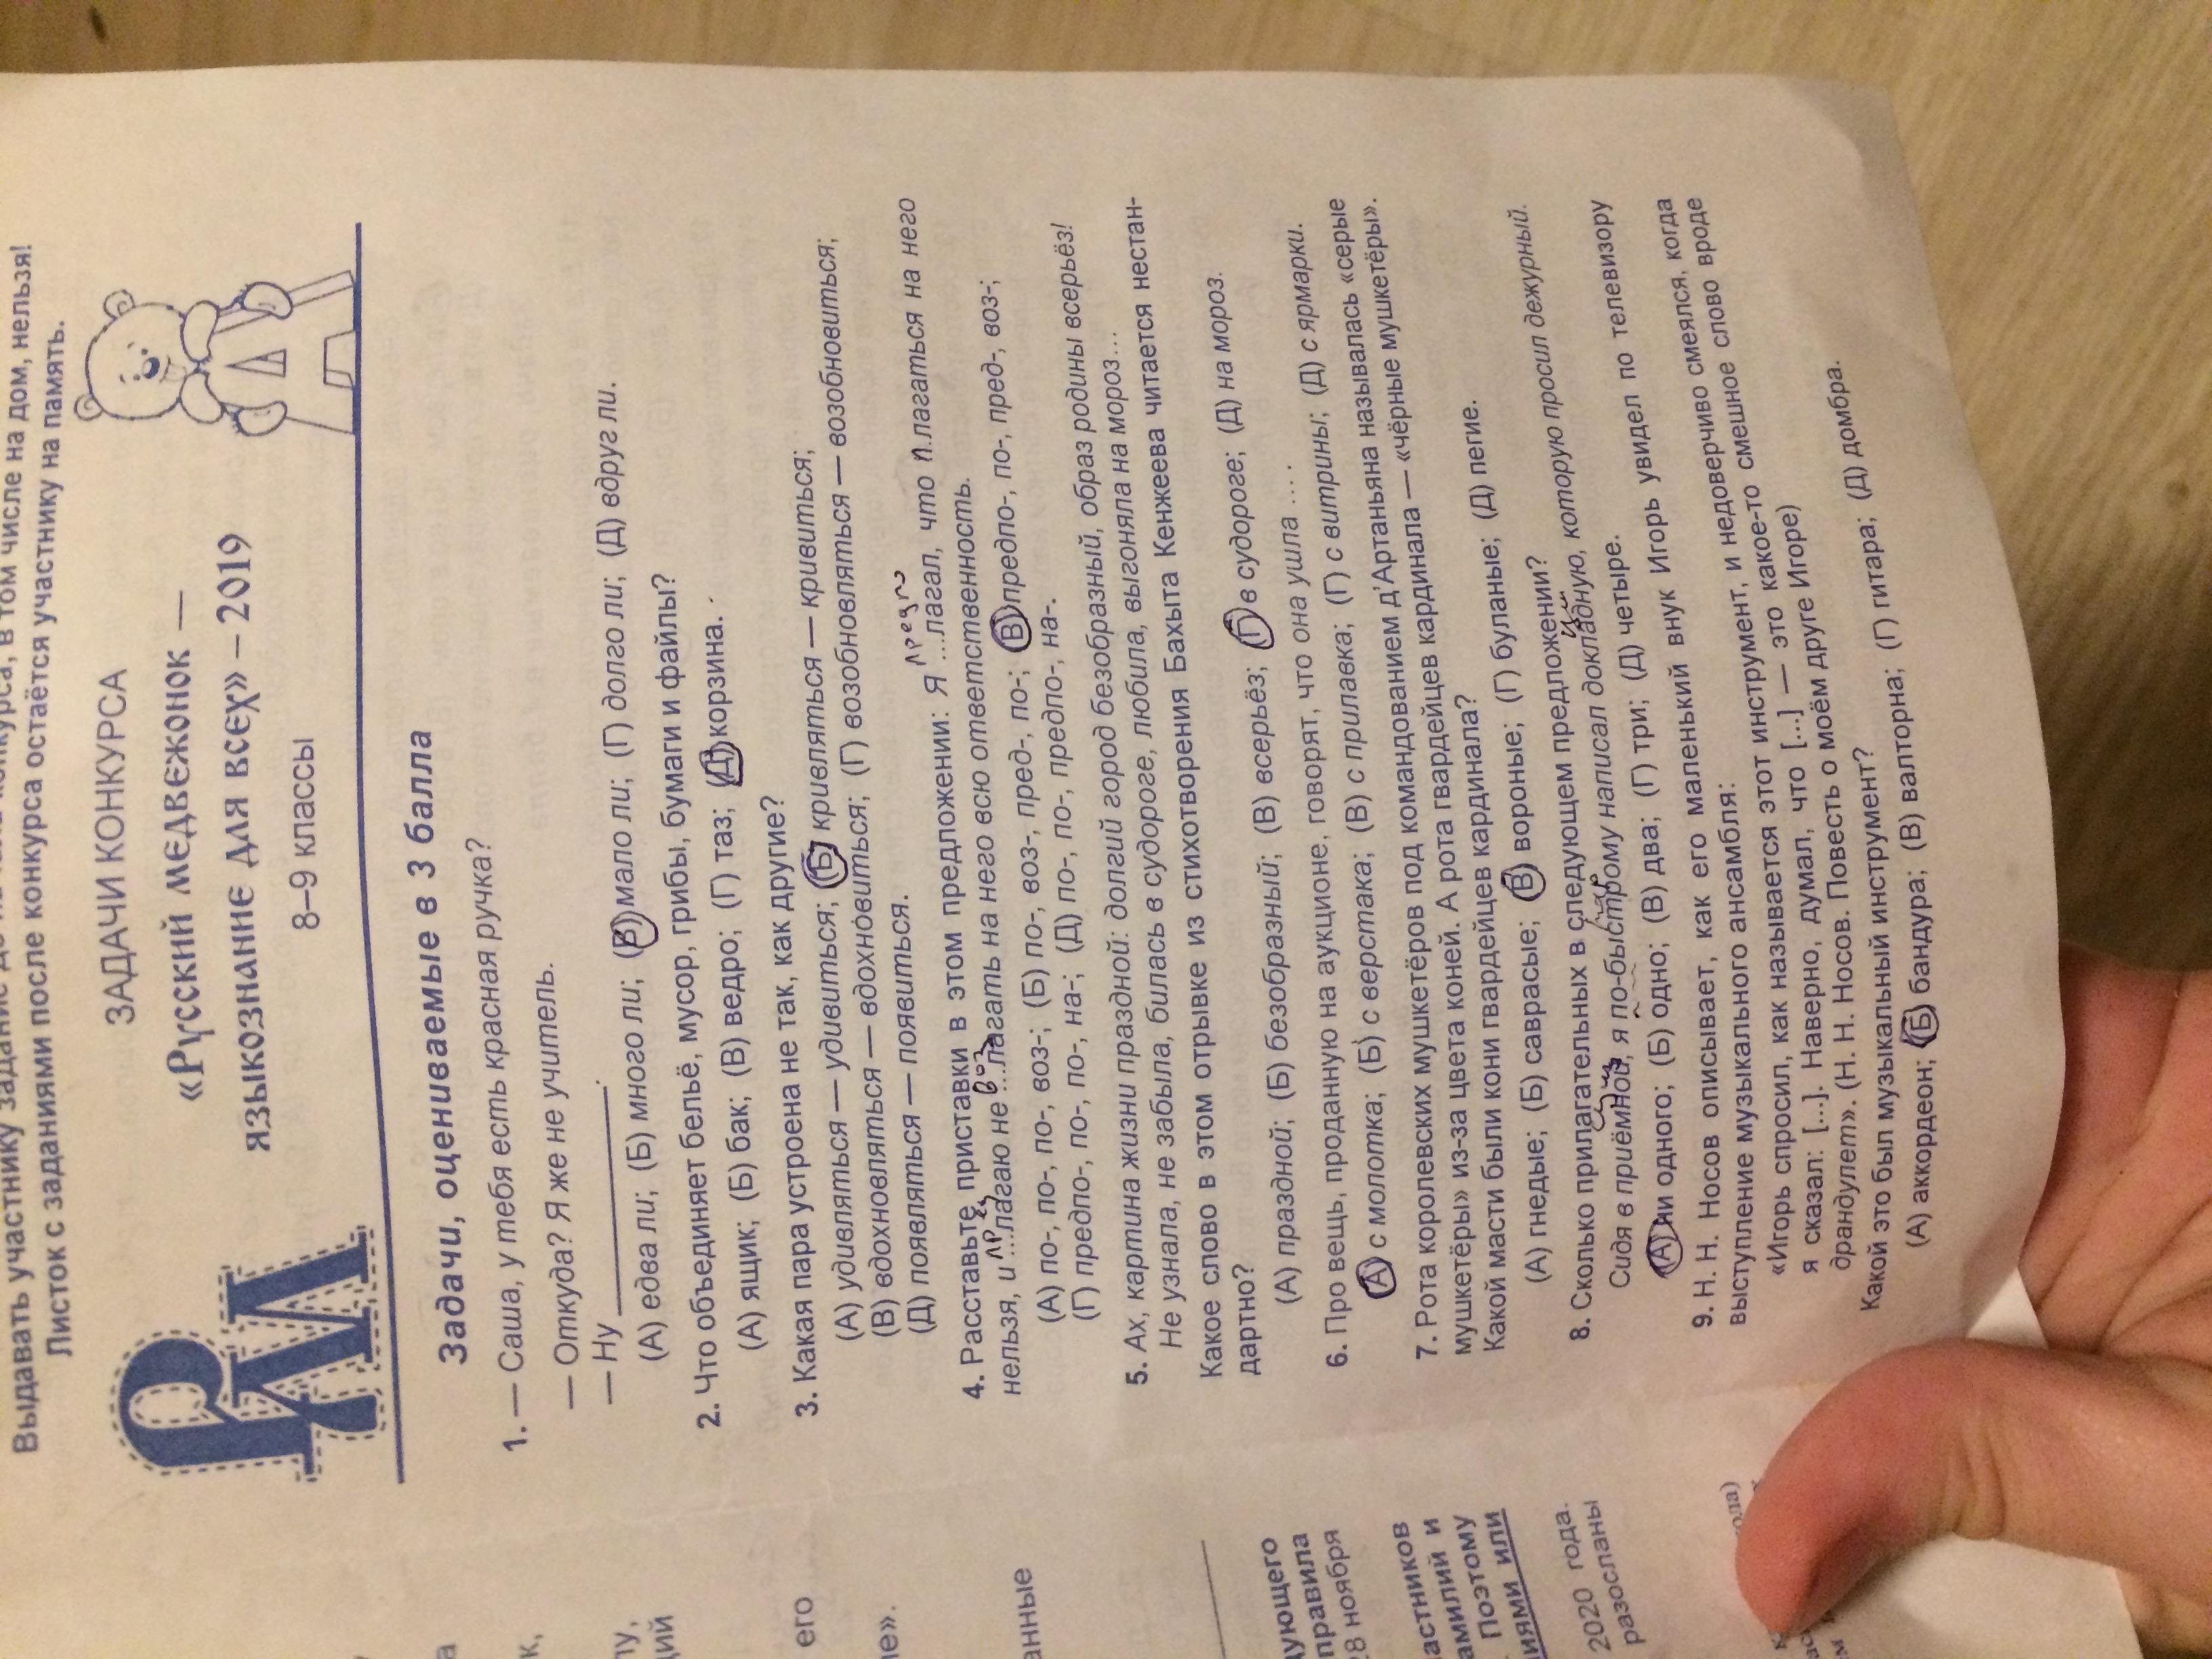 Выдавать участнику задание до
конкурса, в том числе на дом, нельзя!
Листок с заданиями после конкурса остаётся участнику на память.
РМ
ЗАДАЧИ КОНКУРСА
«Русский медвежонок —
языкознание для всех» – 2019
8–9 классы
Задачи, оцениваемые в 3 балла
1. — Саша, у тебя есть красная ручка?
— Откуда? Я же не учитель.
— Ну ________.
(А) едва ли; (Б) много ли; (В) мало ли; (Г) долго ли; (Д) вдруг ли.
2. Что объединяет бельё, мусор, грибы, бумаги и файлы?
(А) ящик; (Б) бак; (В) ведро; (Г) таз; (Д) корзина.
3. Какая пара устроена не так, как другие?
(А) удивляться — удивиться; (Б) кривляться — кривиться;
(В) вдохновляться — вдохновиться; (Г) возобновляться — возобновиться;
(Д) появляться — появиться.
4. Расставьте приставки в этом предложении: Я …лагал, что п.лагаться на него
нельзя, и …лагаю не …лагать на него всю ответственность.
(А) по-, по-, по-, воз-; (Б) по-, воз-, пред-, по-; (В) предпо-, по-, пред-, воз-;
(Г) предпо-, по-, по-, на-; (Д) по-, по-, предпо-, на-.
5. Ах, картина жизни праздной: долгий город безобразный, образ родины всерьёз!
Не узнала, не забыла, билась в судороге, любила, выгоняла на мороз…
Какое слово в этом отрывке из стихотворения Бахыта Кенжеева читается нестан-
дартно?
(А) праздной; (Б) безобразный; (В) всерьёз; (Г) в судороге; (Д) на мороз.
6. Про вещь, проданную на аукционе, говорят, что она ушла … .
(А) с молотка; (Б) с верстака; (В) с прилавка; (Г) с витрины; (Д) с ярмарки.
7. Рота королевских мушкетёров под командованием д’Артаньяна называлась «серые
мушкетёры» из-за цвета коней. А рота гвардейцев кардинала — «чёрные мушкетёры».
Какой масти были кони гвардейцев кардинала?
(А) гнедые; (Б) саврасые; (В) вороные; (Г) буланые; (Д) пегие.
8. Сколько прилагательных в следующем предложении?
Сидя в приёмной, я по-быстрому написал докладную, которую просил дежурный.
(А) ни одного; (Б) одно; (В) два; (Г) три; (Д) четыре.
9. Н. Н. Носов описывает, как его маленький внук Игорь увидел по телевизору
выступление музыкального ансамбля:
«Игорь спросил, как называется этот инструмент, и недоверчиво смеялся, когда
я сказал: […]. Наверно, думал, что […] — это какое-то смешное слово вроде
драндулет». (Н. Н. Носов. Повесть о моём друге Игоре)
Какой это был музыкальный инструмент?
(А) аккордеон; (Б) бандура; (В) валторна; (Г) гитара; (Д) домбра.
его
анные
дующего
правила
8 ноября
астников
амилий и
Поэтому
иями или
2020 года.
разосланы